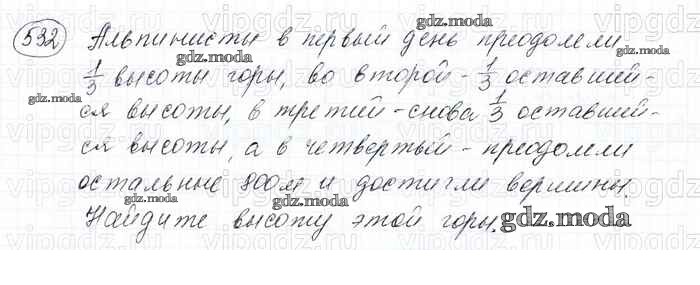 532 Альпинисты в первый день преодолели
1/3 высоты горы, во второй - 1/3 оставшей-
ся высоты, в третий - снова 1/3 оставшей-
ся высоты, а в четвертый - преодолели
остальные 800м и достигли вершины.
Найдите высоту этой горы.
gdz.moda
gdz.moda
gdz.moda
gdz.moda
gdz.moda
gdz.moda
gdz.moda
gdz.moda
vipgdz